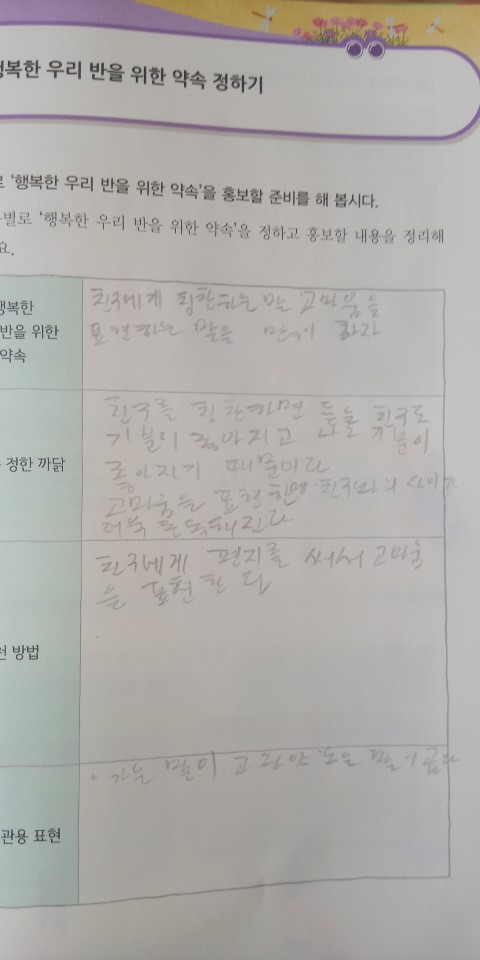 행복한 우리 반을 위한 약속 정하기
로 '행복한 우리 반을 위한 약속'을 홍보할 준비를 해 봅시다.
별로 '행복한 우리 반을 위한 약속'을 정하고 홍보할 내용을 정리해
요.
행복한
반을 위한
약속
친구에게 칭찬하는 말 고마움을
표현하는 말을 많이 하라
정한 까닭
친구를 칭찬하면 듣는 친구도
기분이 좋아지고 기분이
좋아지기 때문이다
고마움을 표현하면 친구와의 사이가
더욱 돈독해진다
천 방법
친구에게 편지를 써서 고마움
을 표현한다
관용 표현
가는 말이 고와야 오는 말이 곱다